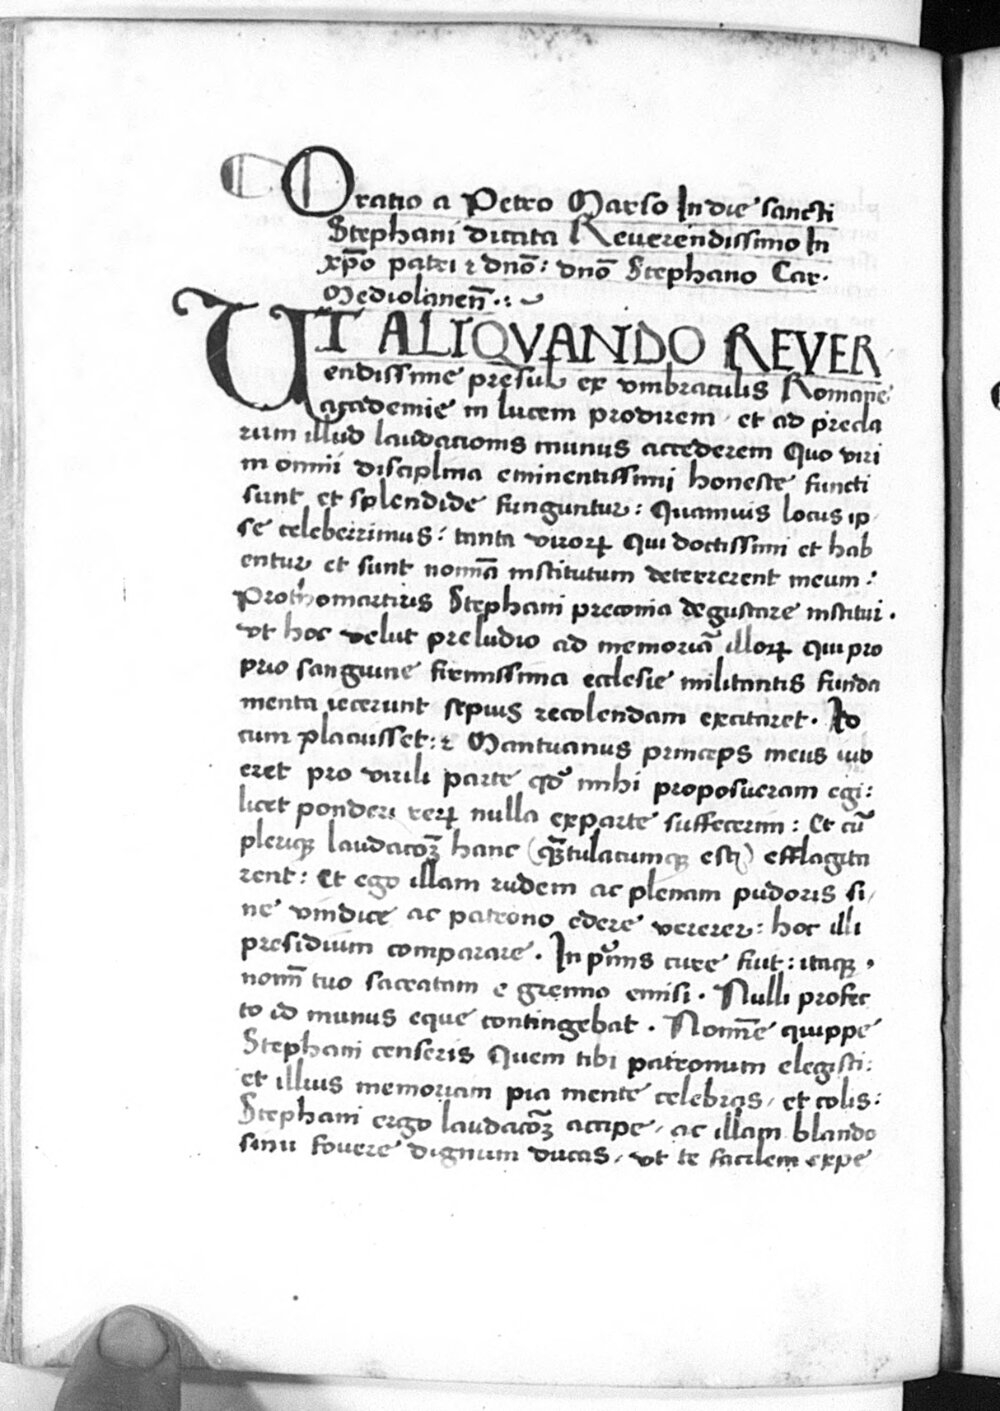 Oratio a Petro Marso In die sancti
Stephani dicata Reuerendissimo In
xp̄o patri ⁊ dnō: dnō Stephano Car.
Mediolanen̄.
UT ALIQVANDO REVER
endissime presul ex vmbraculis Romane
academie in lucem prodirem, et ad precla
rum illud laudationis munus accederem Quo viri
in omni disciplina eminentissimi honeste functi
sunt et splendide funguntur: Quamuis locus ip
se celeberrimus: tanta virorꝝ qui doctissimi et hab
entur et sunt nomīa institutum deterrerent meum:
Prothomartiris Stephani preconia degustare institui.
vt hoc velut preludio ad memoriā illorꝝ qui pro
prio sanguine firmissima ecclesie militantis funda
menta iecerunt sepius recolendam excitaret. Id
cum placuisset: ⁊ Mantuanus princeps meus iub
eret pro virili parte qd̄ mihi proposueram egi:
licet ponderi rerꝝ nulla exparte suffecerim: Et cū
pleriqꝫ laudacōꝫ hanc (qᷓtulacumqꝫ est) efflagita
rent: Et ego illam rudem ac plenam pudoris si,
ne vindice ac patrono edere vererer: hoc illi
presidium comparare. In pᷓmis cure fuit: itaqꝫ,
nomī tuo sacratam e gremio emisi. Nulli profec
to id munus eque contingebat. Nomīe quippe
Stephani censeris Quem tibi patronum elegisti:
et illius memoriam pia mente celebras, et colis:
Stephani ergo laudacōꝫ accipe, ac illam blando
sinu fouere dignum ducas, vt te facilem expe